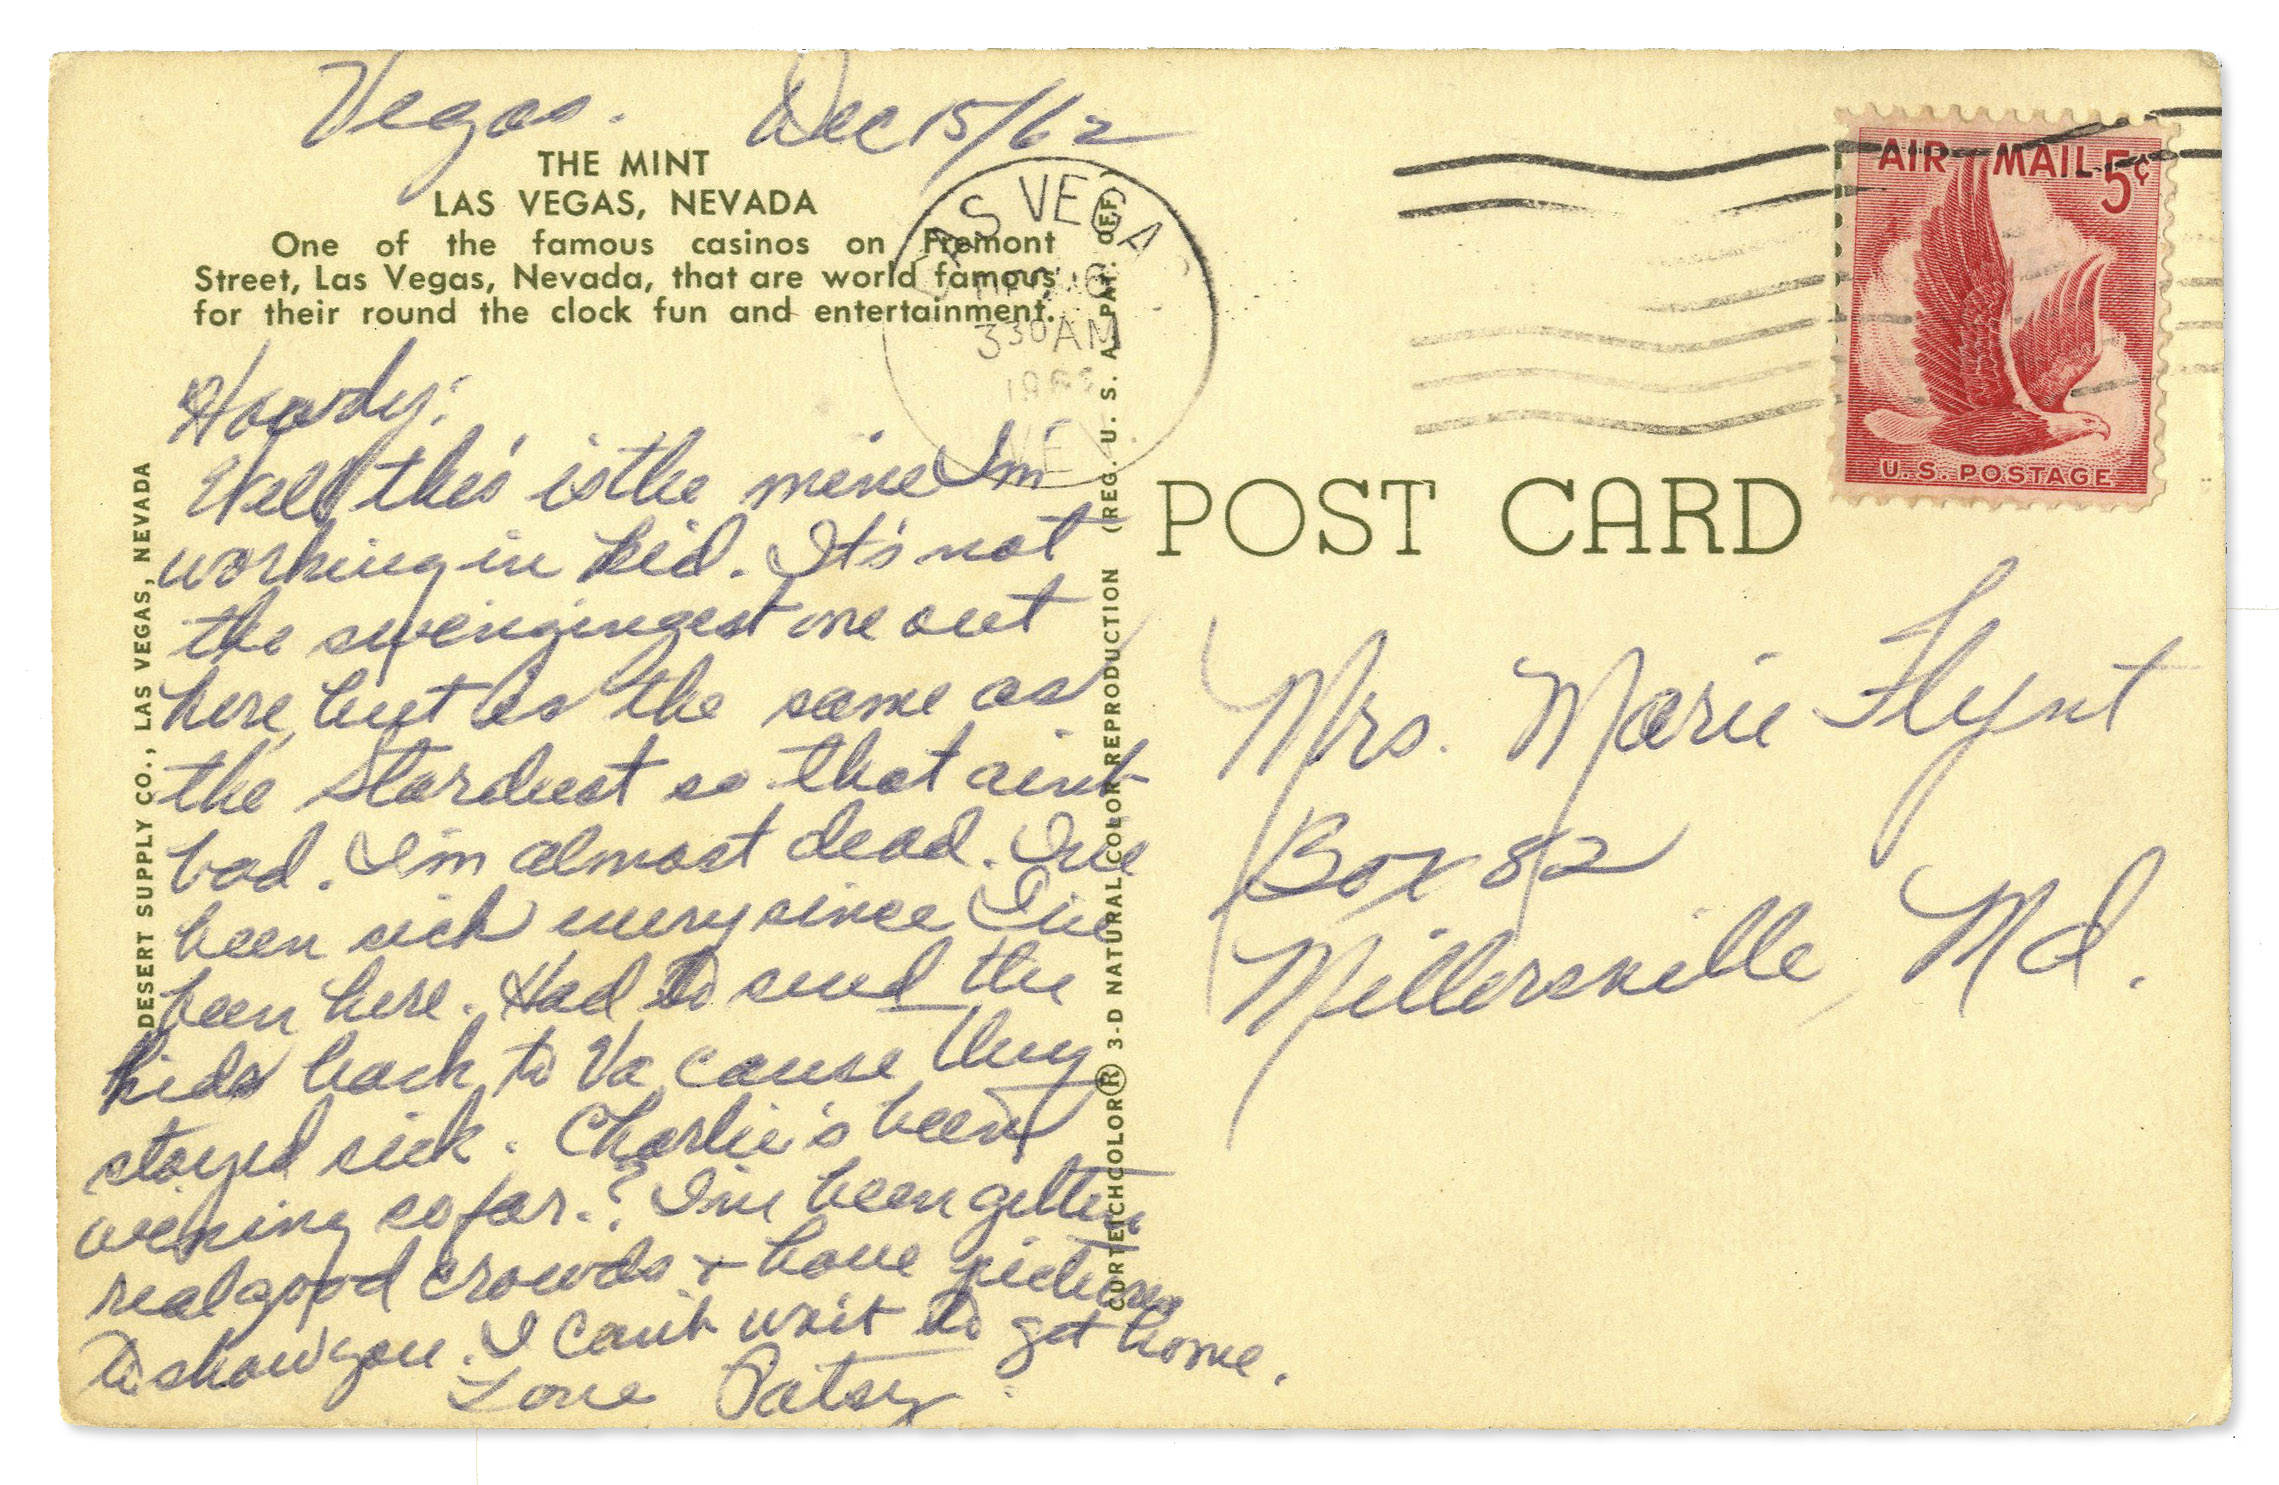 Vegas. Dec 15/62
THE MINT
LAS VEGAS, NEVADA
One of the famous casinos on Fremont
Street, Las Vegas, Nevada, that are world famous
for their round the clock fun and entertainment.
Howdy:
Well this is the mine I'm
working in kid. It's not
the swengingest one out
here, but is the same as
the Stardust so that aint
bad. I'm almost dead. I've
been sick every since I've
been here. Had to send the
kids back to Va, cause they
stayed sick. Charlie's been
wening so far.? I've been getten
real good crowds + have pictures
to show you. I can't wait to get home.
Love Patsy
DESERT SUPPLY CO., LAS VEGAS, NEVADA
CURTEICHCOLOR® 3-D NATURAL COLOR REPRODUCTION (REG. U. S. A. PAT. OFF.)
LAS VEGA
330 AM
196
NEV.
AIR MAIL 5¢
U.S. POSTAGE
POST CARD
Mrs. Marie Flynt
Box 82
Millersville, Md.